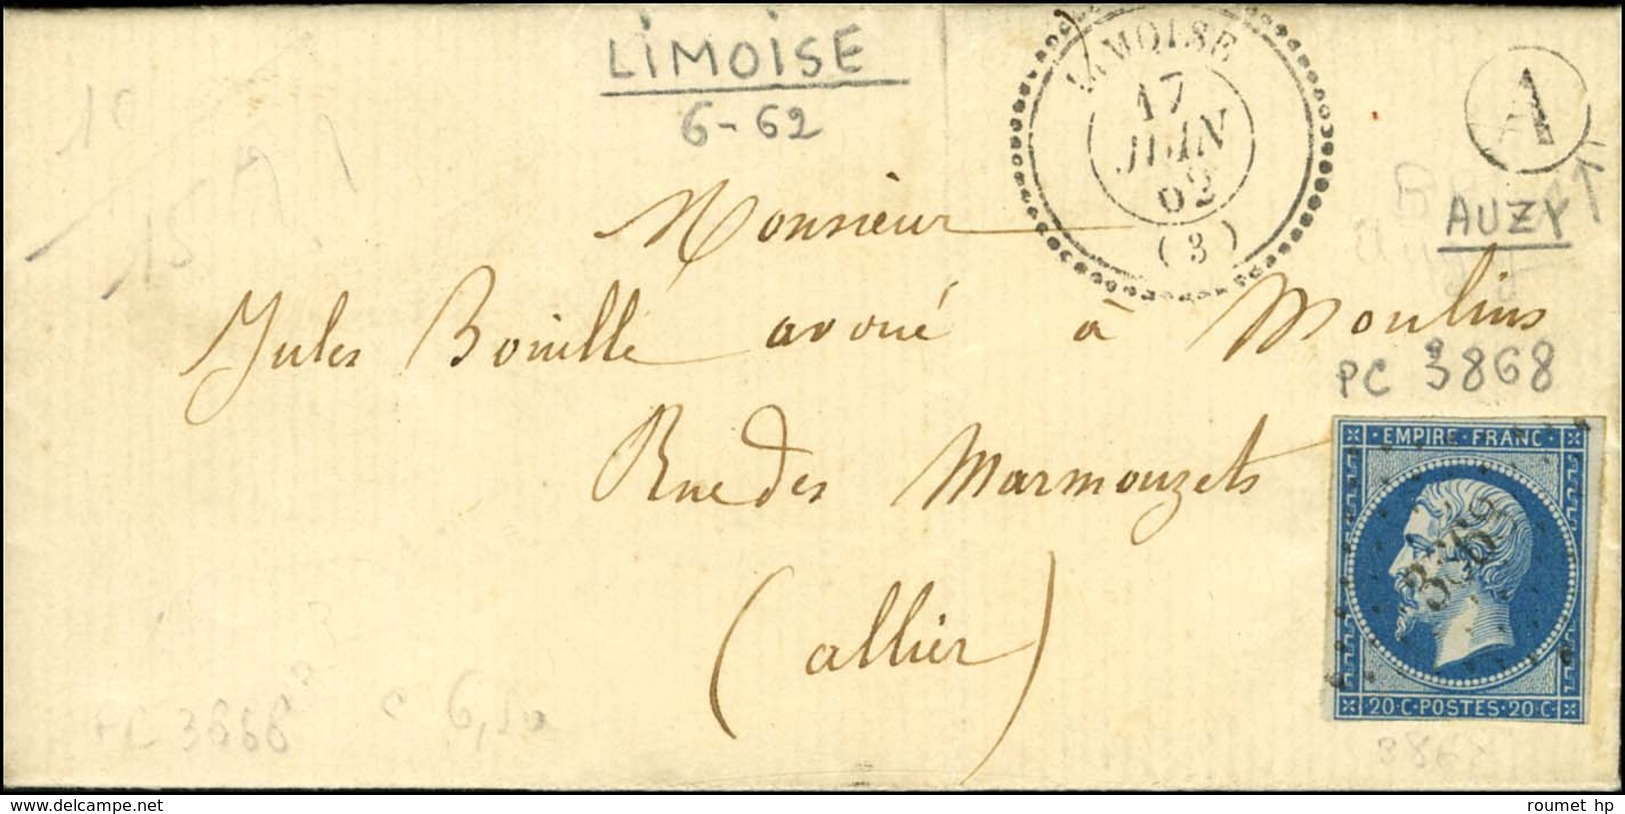 LIMOISE
6-62
LIMOISE
17
JUIN
62
(3)
A
AUZY
Monsieur
Jules Bouillé avoué à Moulins
PC 3868
Rue des Marmouzets
(allier)
EMPIRE FRANC
3868
20·C·POSTES·20·C
PC 3868
6,50
3868
www.delcampe.net
roumet hp